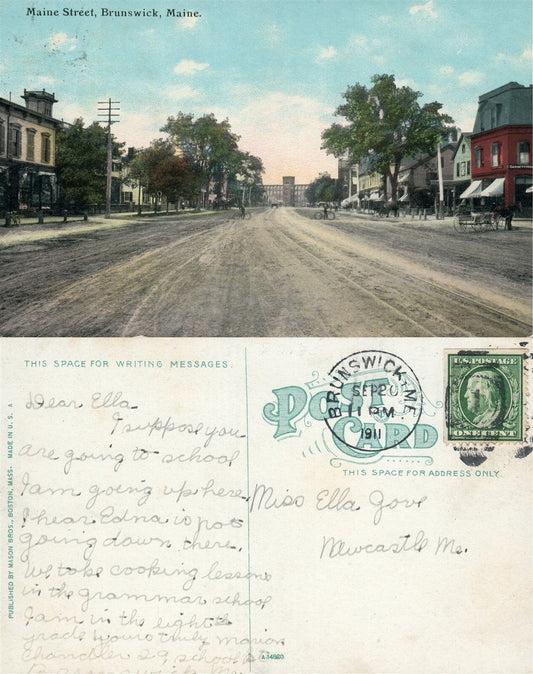 Maine Street, Brunswick, Maine.
THIS SPACE FOR WRITING MESSAGES.
Dear Ella
I suppose you
are going to school
I am going up here.
I hear Edna is not
going down there.
We take cooking lessons
in the grammar school
I am in the eighth
grade yours truly Marion
Chandler 29 school st
Brunswick Me
PUBLISHED BY MASON BROS., BOSTON, MASS. MADE IN U. S. A
POST CARD
BRUNSWICK, ME.
SEP 20
11 PM
1911
U.S. POSTAGE
ONE CENT
THIS SPACE FOR ADDRESS ONLY.
Miss Ella Gove
Newcastle Me.